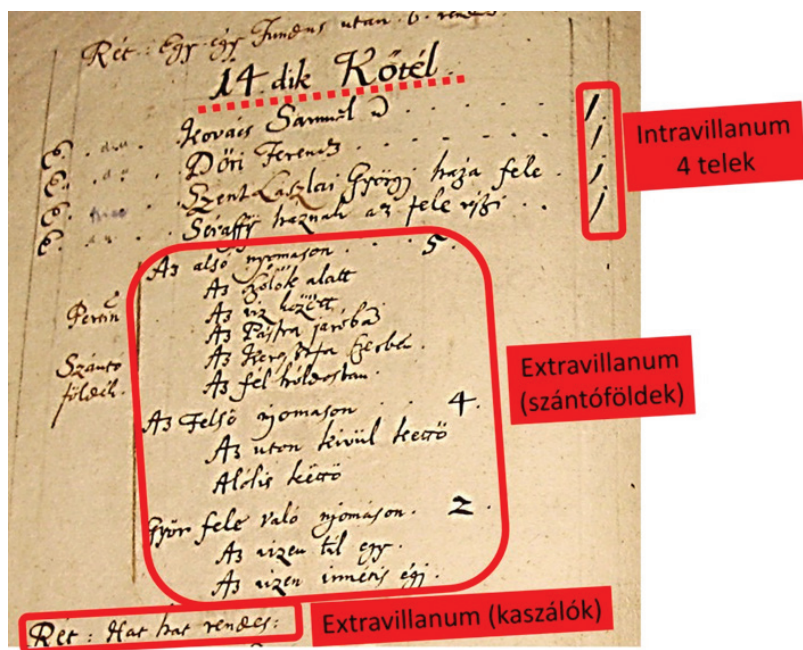 Rét: Egy egy Fundus utan 6. rendes
14. dik Kötél.
Kovács Samuel ð . . . . . 1.
Dőri Ferencz . . . . . . 1
Szent Laszlai György haza fele . 1.
Séraffy haznak az fele részi . . 1
Az alsó nyomason . . . . 5.
Az szőlők alatt
Az viz között
Az Pástra járóba
Az Keresztfa szerbe
Az fél hóldosban.
Persin
Szánto
földek.
Az Felső njomason . . . 4.
Az uton kivül kettö
Alólis kettö
Györ fele való njomáson. 2.
Az vizen túl egy.
Az vizen innétis egj.
Rét: Hat hat rendes:
Intravillanum
4 telek
Extravillanum
(szántóföldek)
Extravillanum (kaszálók)